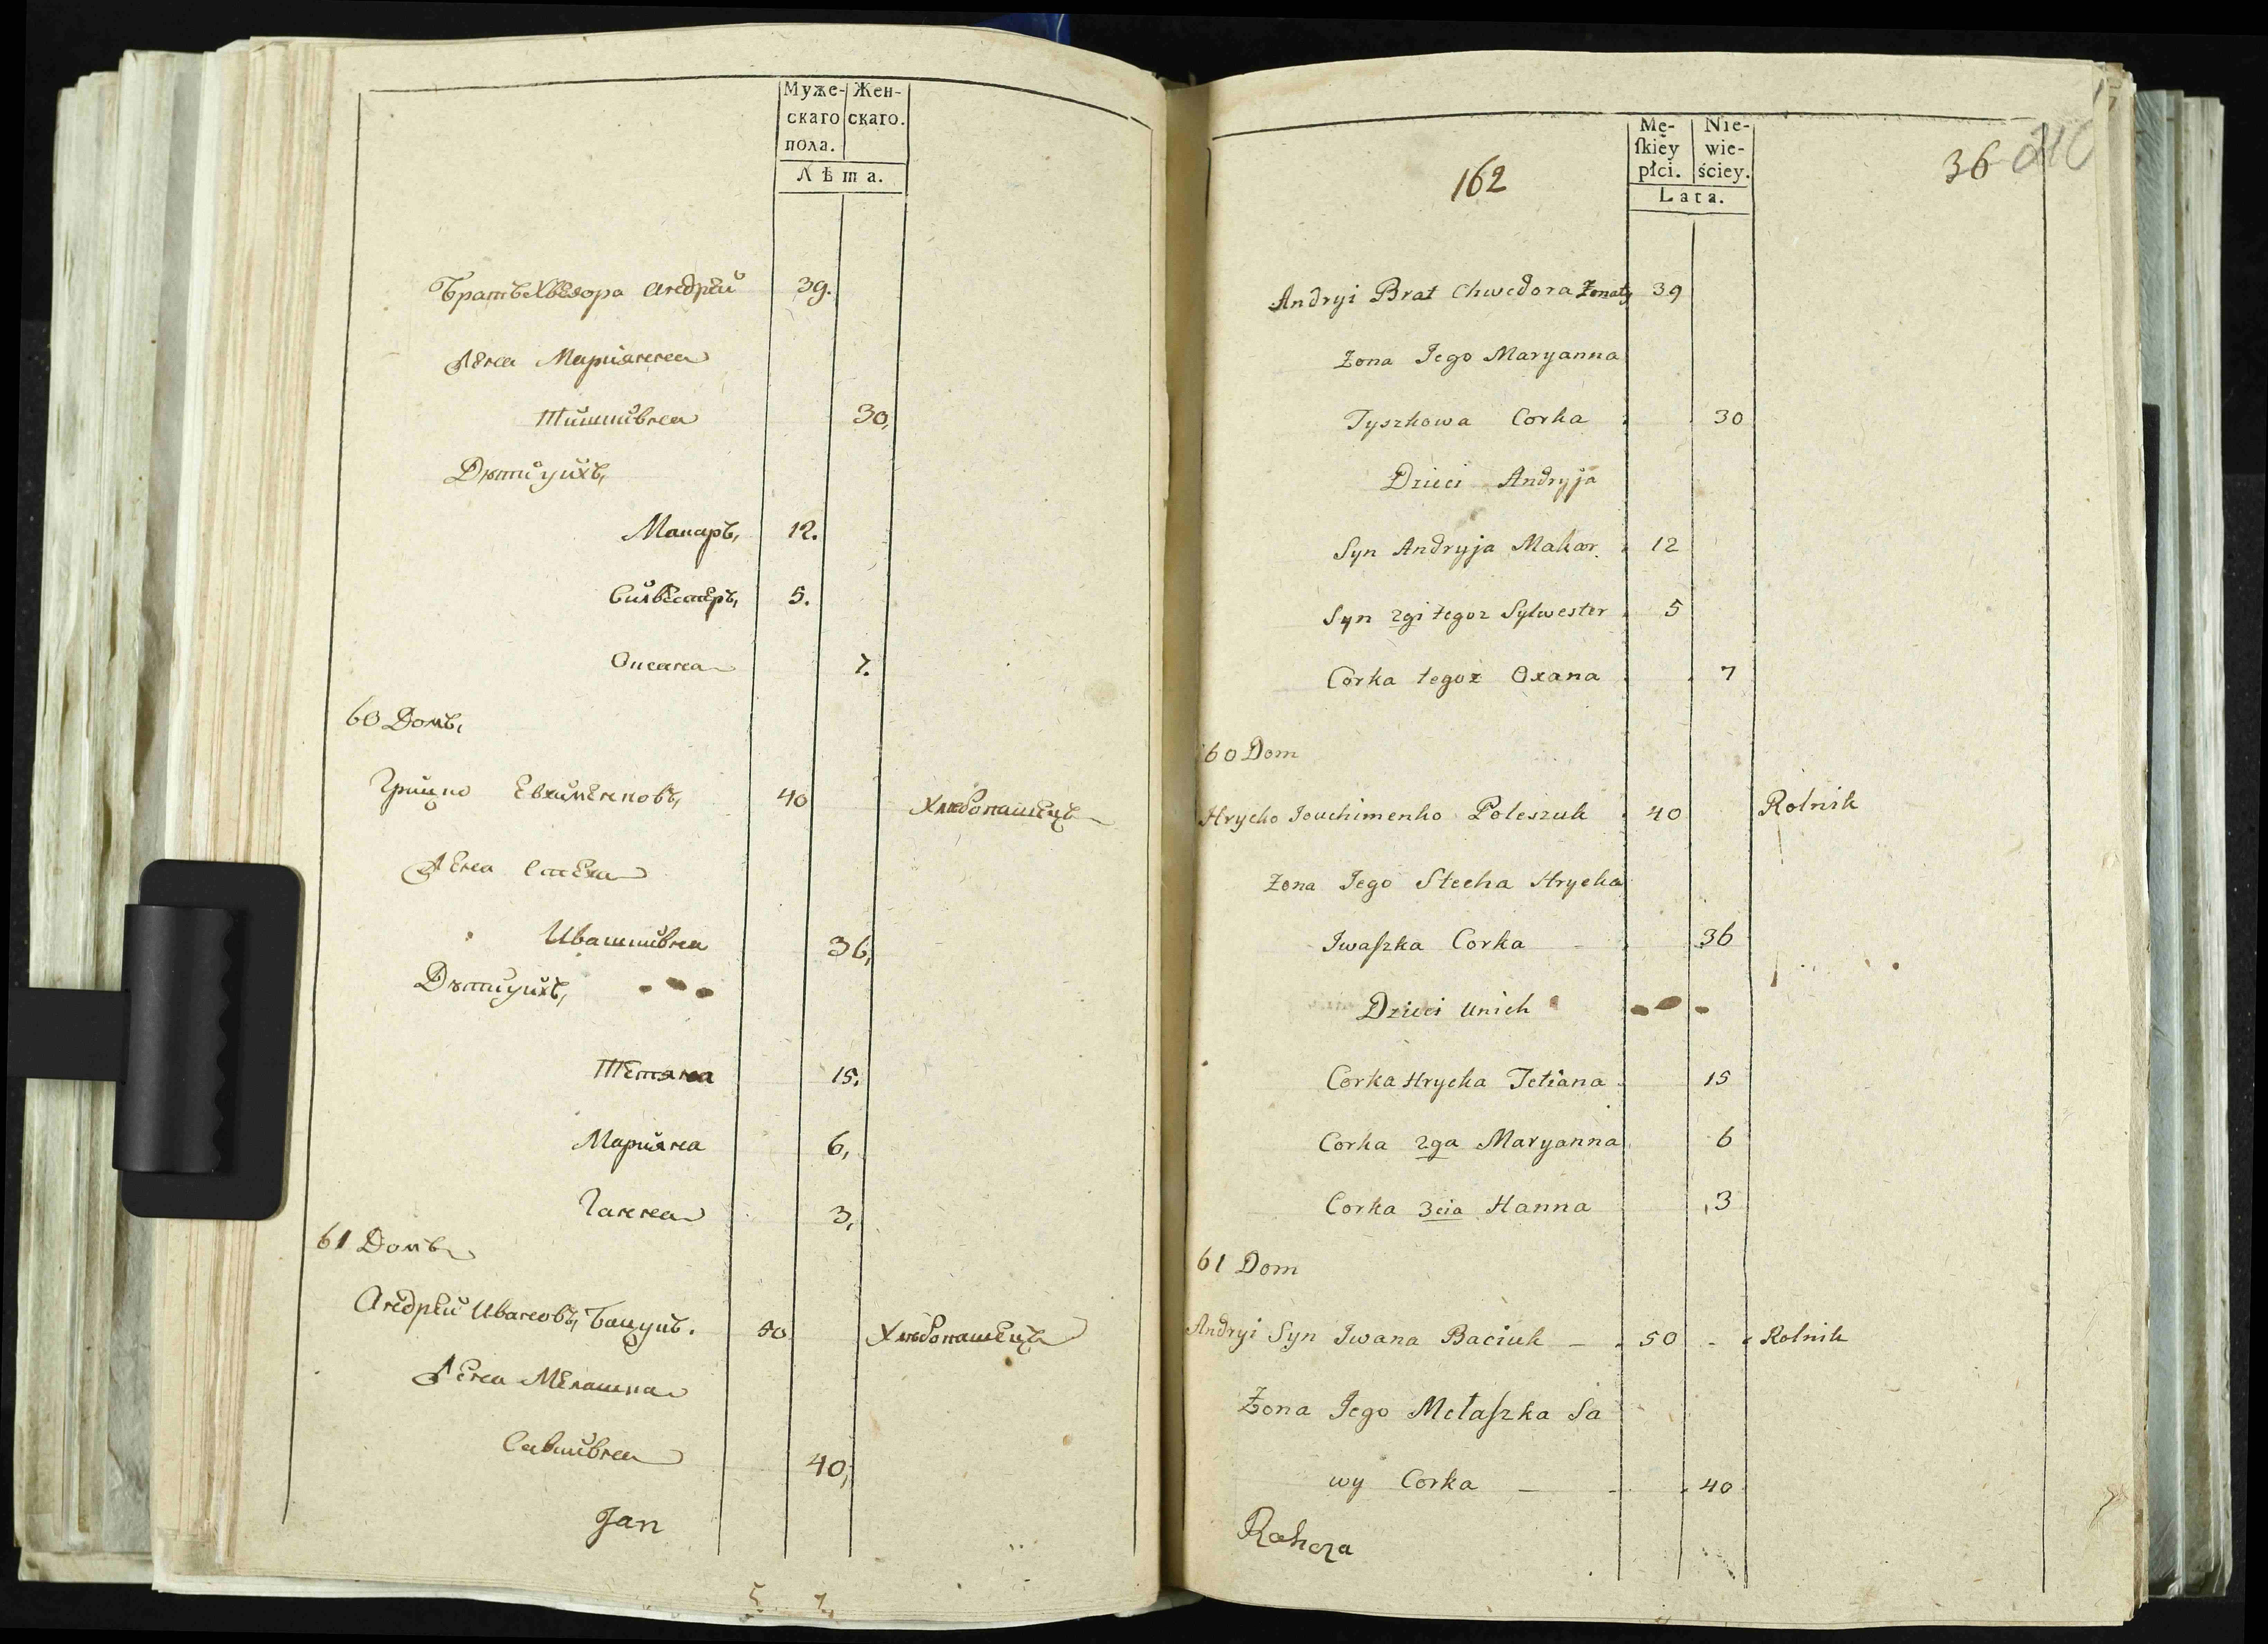 Муже- Жен-
скаго скаго.
пола.
Лѣта.
Братъ Хведора Андрей 39.
Жена Марианна
Тишкивна 30,
Дѣти ỹихъ,
Макаръ, 12.
Силвестеръ, 5.
Оксана 7.
60 Домъ,
Грицко Евхименковъ, 40 Хлебопашецъ
Жена Стеха
Ивашкивна 36,
Дѣти ỹихъ,
Тетяна 15.
Марияна 6,
Ганна 3,
61 Домъ
Андрей Ивановъ, Бацукъ. 50 Хлебопашецъ
Жена Мелашка
Савкивна 40,
Jan
162
Mę- Nie-
ſkiey wie-
płci. ściey.
Lata.
36
Andryi Brat Chwedora Żonaty 39
Żona Jego Maryanna
Tyszkowa Corka 30
Dzieci Andryja
Syn Andryja Makar 12
Syn 2gi tegoż Sylwester 5
Córka tegoż Oxana 7
60 Dom
Hrycko Jouchimenko Poleszuk 40 Rolnik
Żona Jego Stecha Hrycka
Jwaſzka Corka 36
Dzieci unich
Corka Hrycka Tetiana 15
Corka 2ga Maryanna 6
Corka 3cia Hanna 3
61 Dom
Andryi Syn Jwana Baciuk 50 Rolnik
Żona Jego Mełaſzka Sa
wy Corka 40
Rahoza